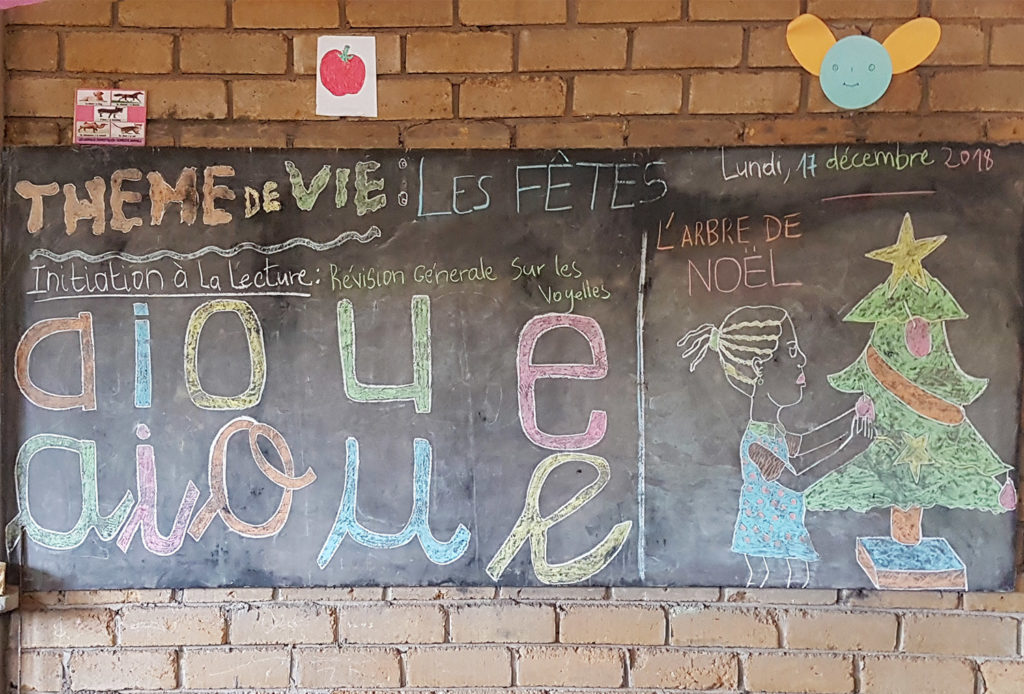 THEME DE VIE : LES FÊTES
Lundi, 17 décembre 2018
Initiation à La Lecture : Révision Génerale Sur les
Voyelles
a i o u e
a i o u e
L'ARBRE DE
NOËL